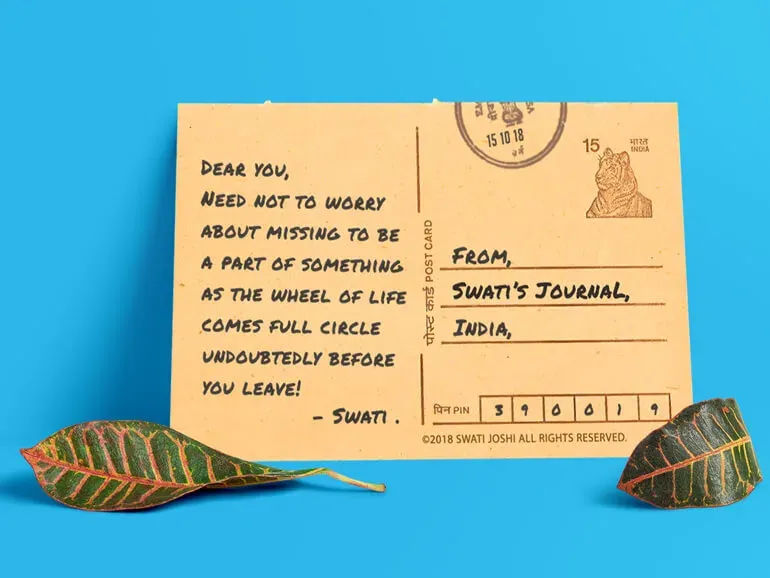 DEAR YOU,
NEED NOT TO WORRY
ABOUT MISSING TO BE
A PART OF SOMETHING
AS THE WHEEL OF LIFE
COMES FULL CIRCLE
UNDOUBTEDLY BEFORE
YOU LEAVE!
- SWATI .
पोस्ट कार्ड POST CARD
15 10 18
15 भारत
INDIA
FROM,
SWATI'S JOURNAL,
INDIA,
पिन PIN 3 9 0 0 1 9
©2018 SWATI JOSHI ALL RIGHTS RESERVED.